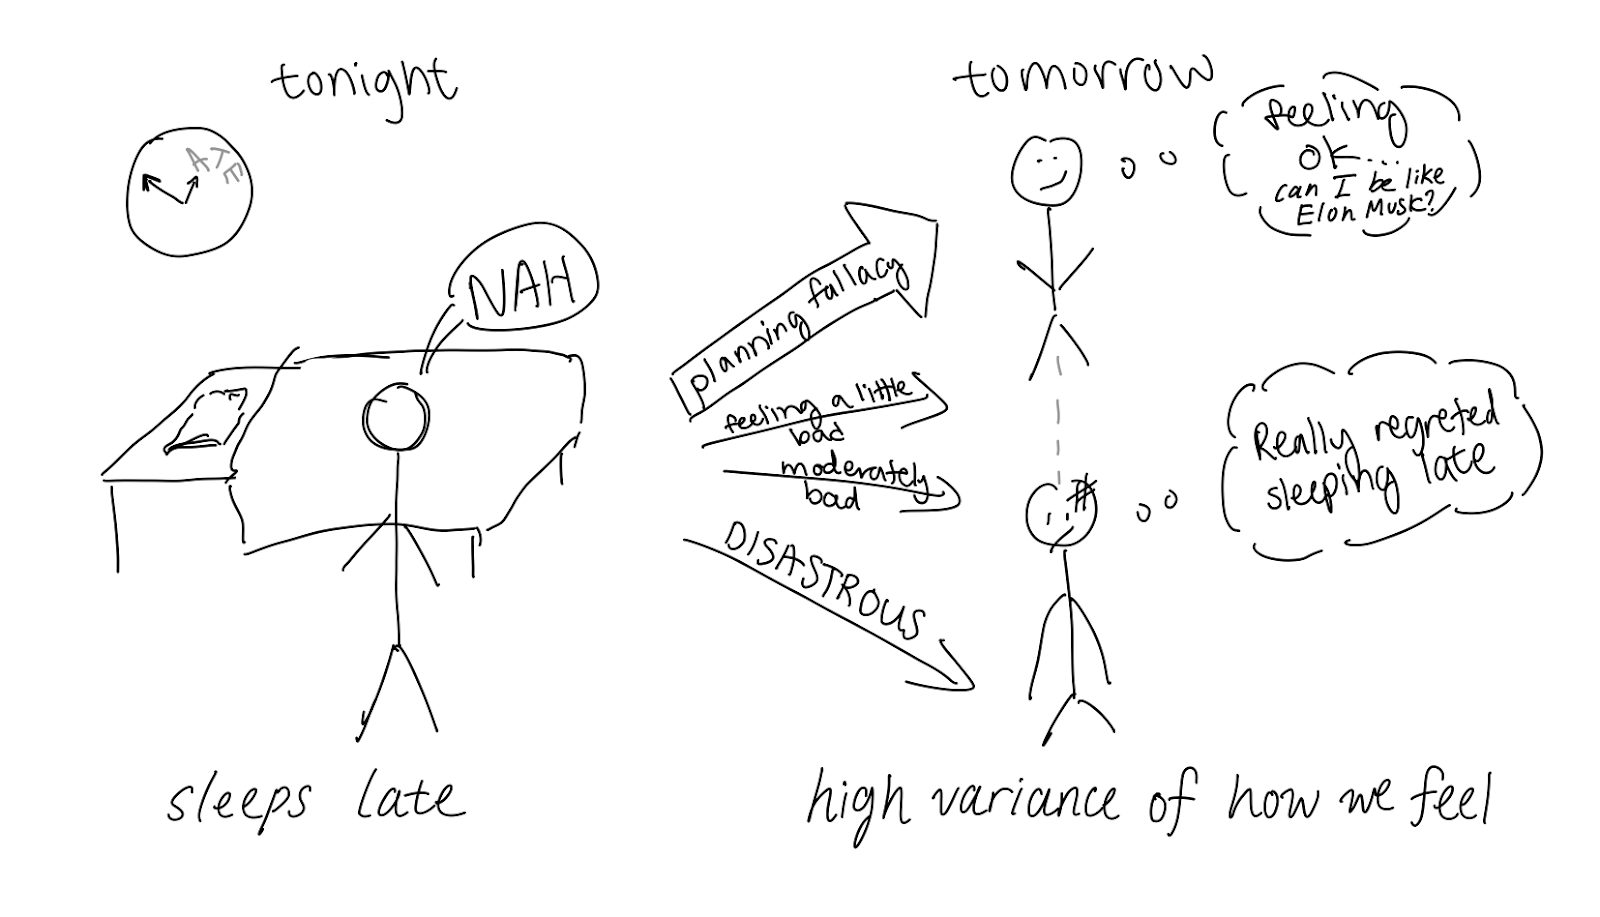 tonight
tomorrow
ATE
NAH
feeling
ok....
can I be like
Elon Musk?
planning fallacy
feeling a little
bad
moderately
bad
DISASTROUS
Really regreted
sleeping late
sleeps late
high variance of how we feel